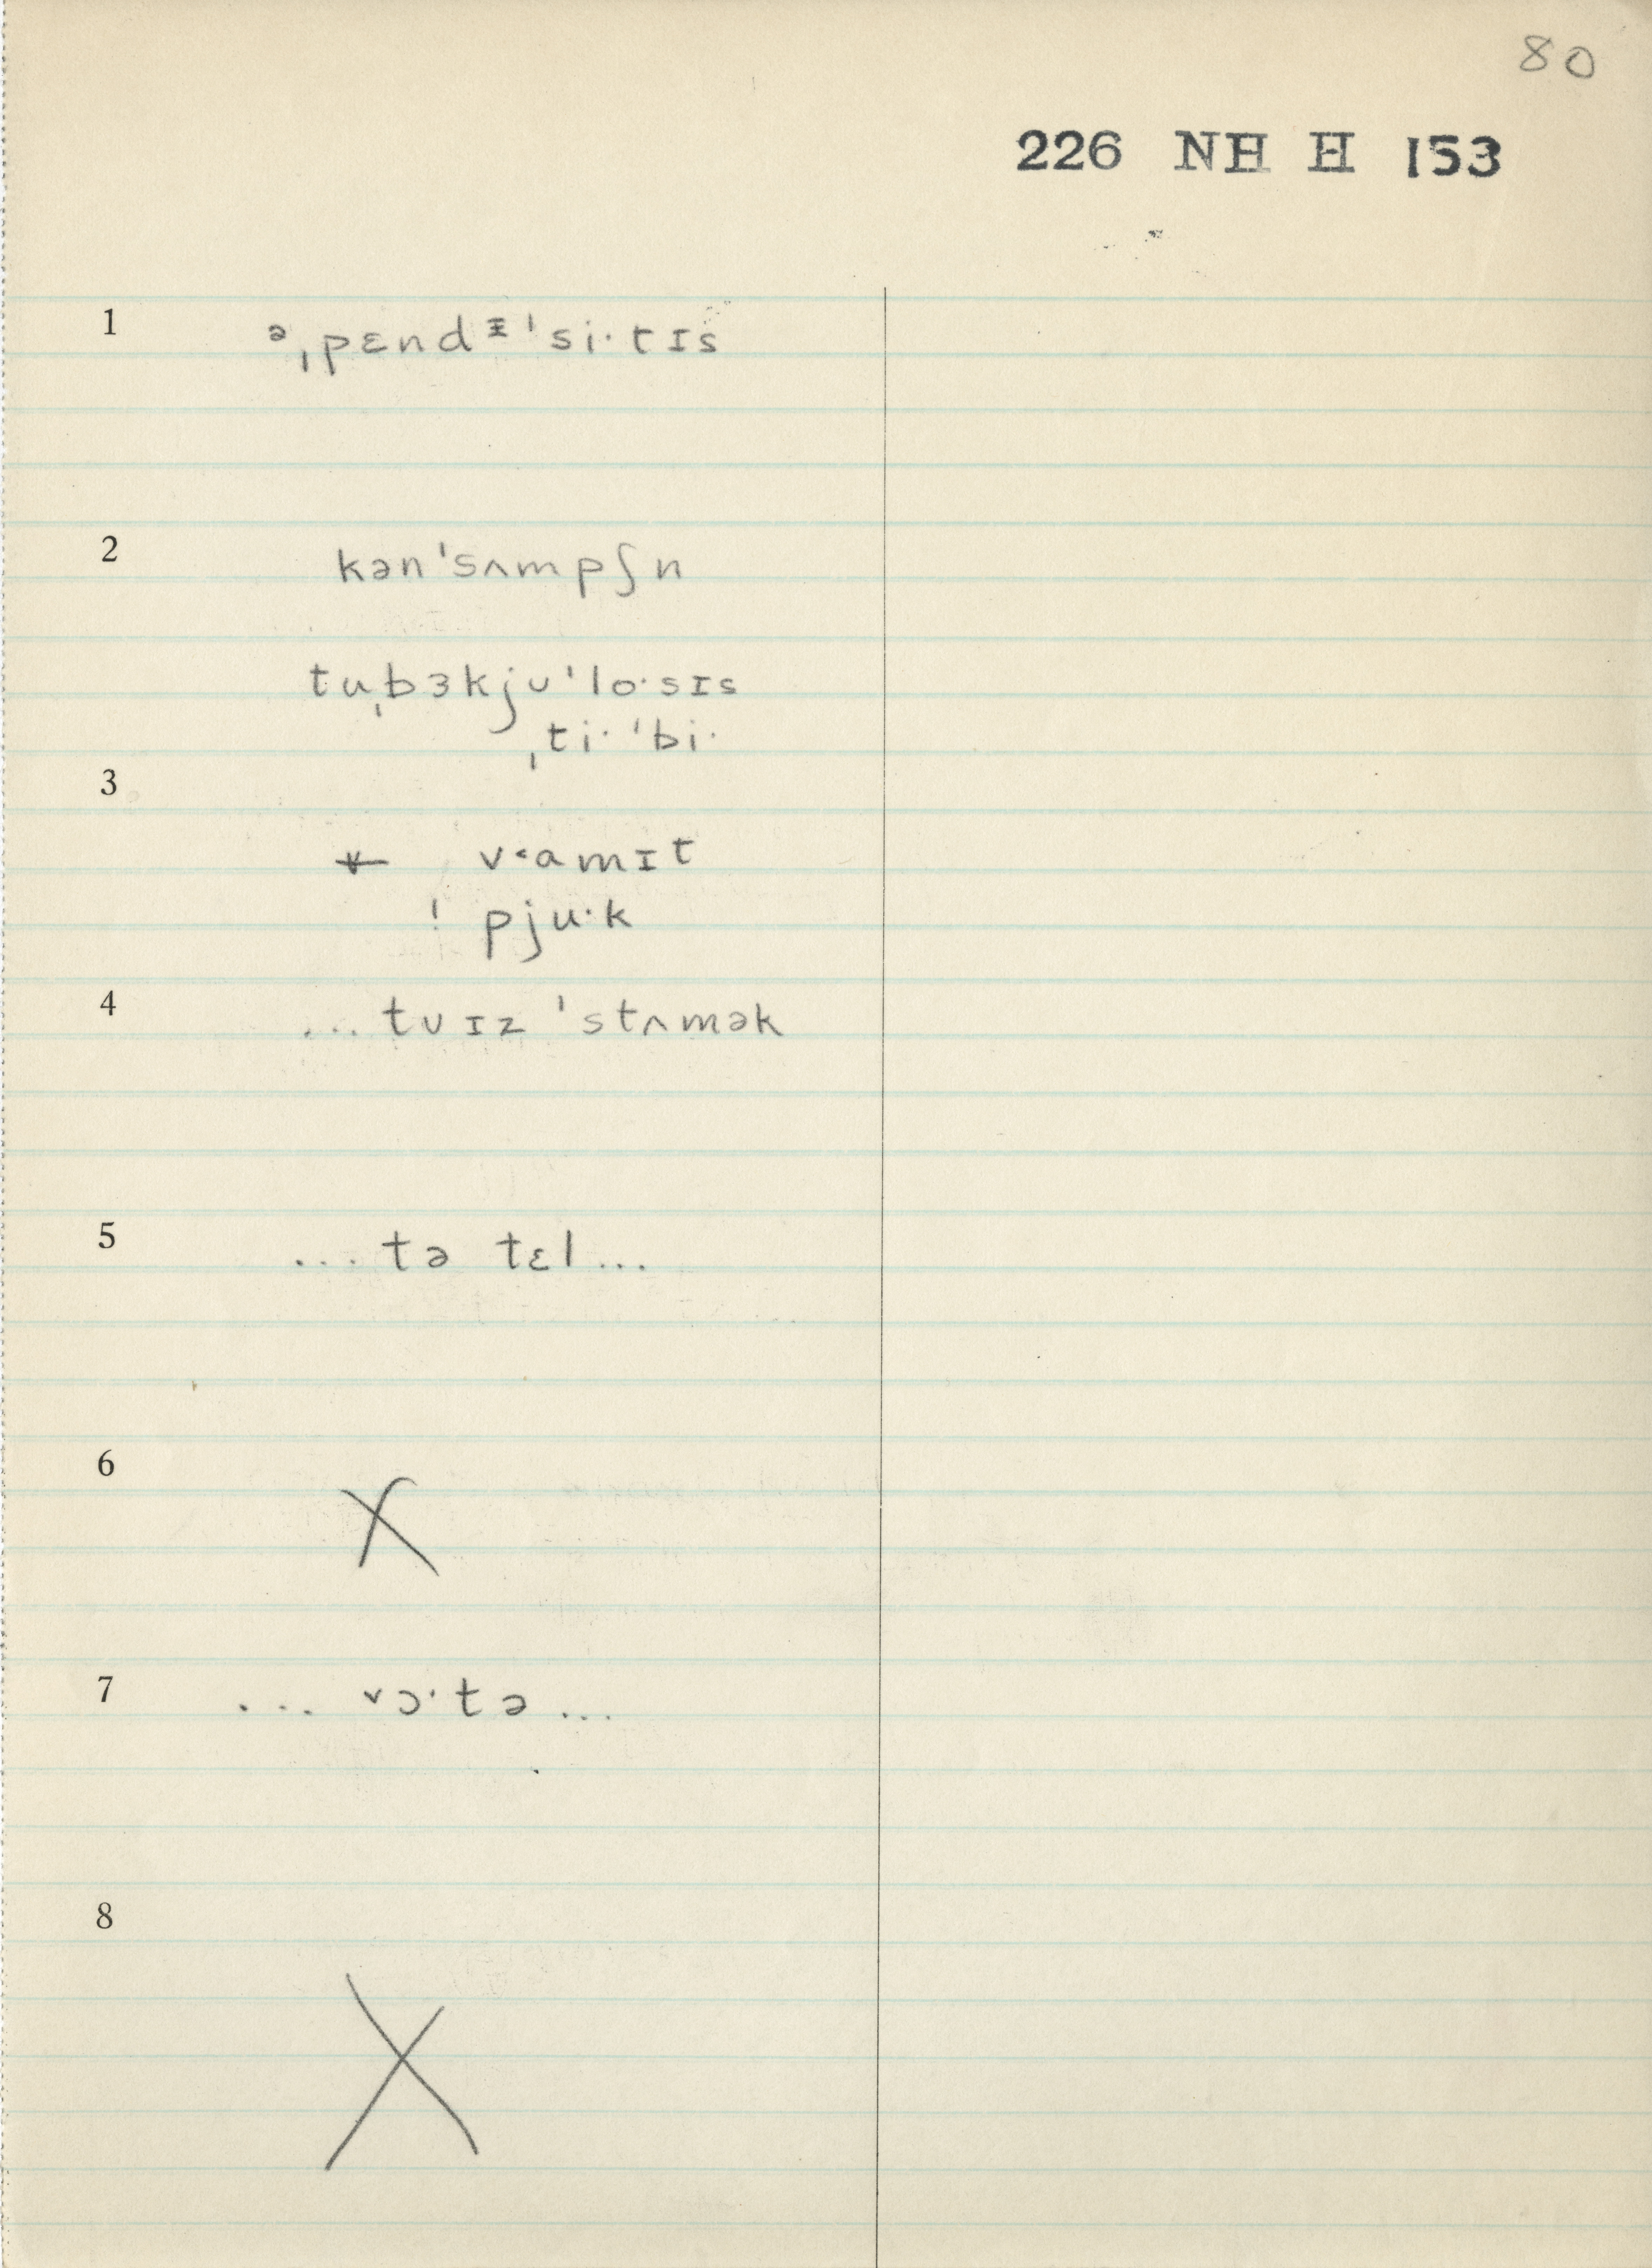 80
226 NH H 153
1 ᵊˌpɛndᵻˈsi·tɪs
2 kənˈsʌmpʃn
tuˌbɜkjʊˈlo·sɪs
ˌti·ˈbi·
3
v˂amɪt
! pju·k
4 ...tʊɪz ˈstʌmək
5 ...tə tɛl...
6 X
7 ... ˅ɔ·tə ...
8 X